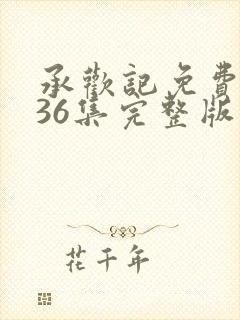 承歡記免費
36集完整版
花千年